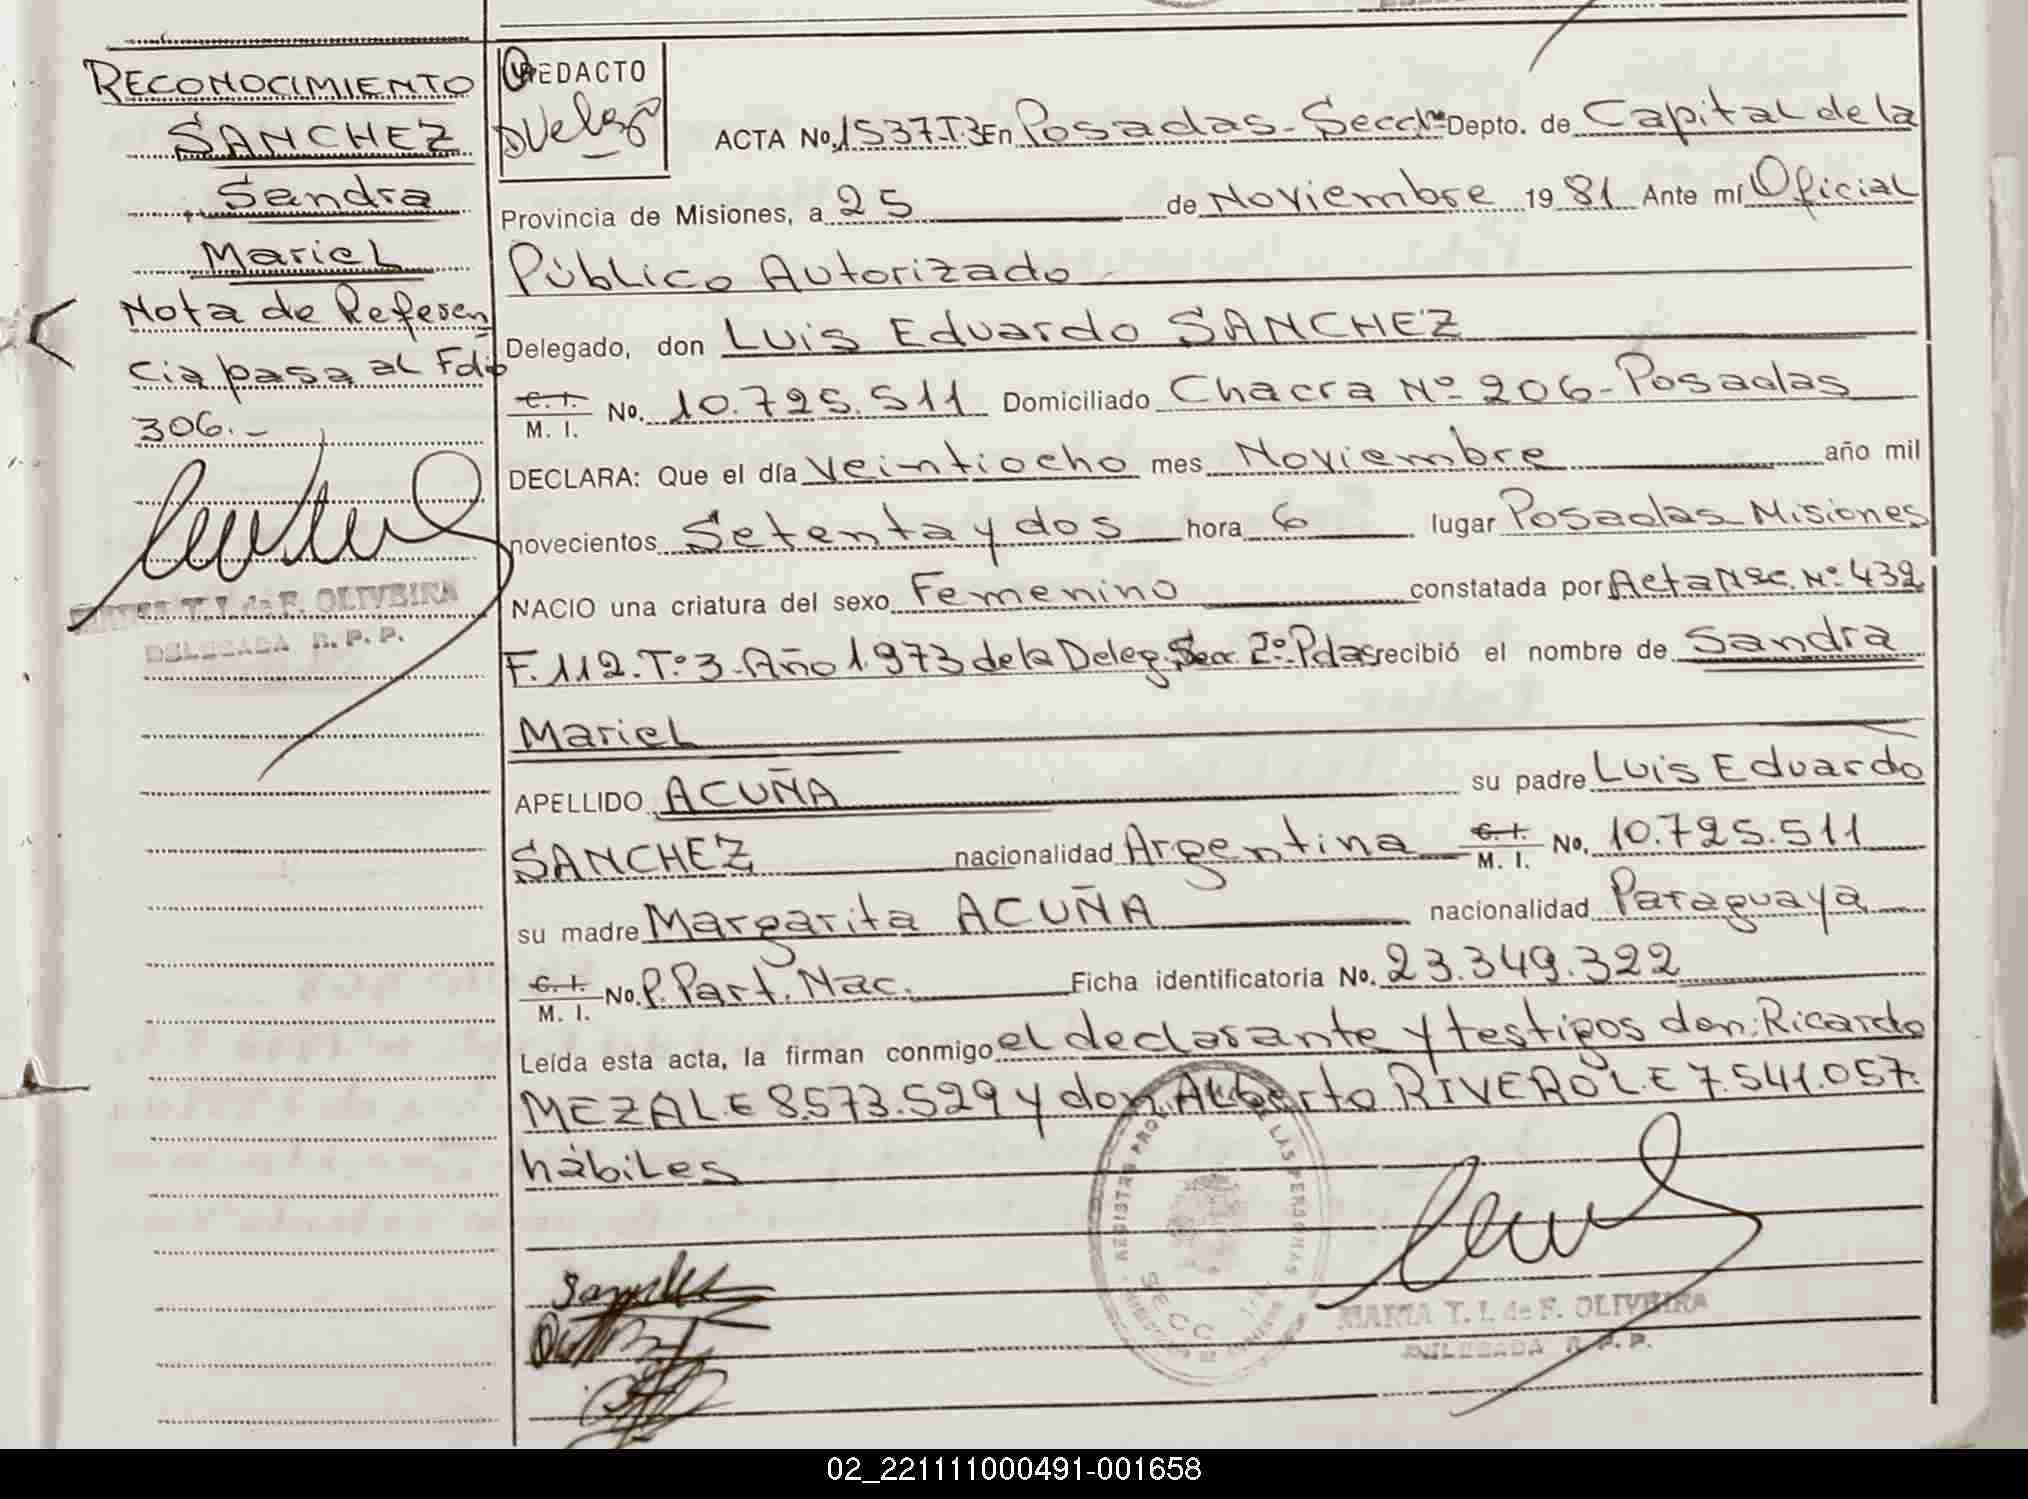 RECONOCIMIENTO
SANCHEZ
Sandra
Mariel
Nota de Referen
cia pasa al Fdio
306.-
T. I. de F. OLIVEIRA
DELEGADA R. P. P.
REDACTO
DVelazo
ACTA No. 1537.T.3 En Posadas - Secc. 1ra Depto. de Capital de la
Provincia de Misiones, a 25 de Noviembre 1981 Ante mí Oficial
Público Autorizado
Delegado, don Luis Eduardo SANCHEZ
C. I. M. I. No. 10.725.511 Domiciliado Chacra Nº 206 - Posadas
DECLARA: Que el día veintiocho mes Noviembre año mil
novecientos Setenta y dos hora 6 lugar Posadas Misiones
NACIO una criatura del sexo Femenino constatada por Acta Nac. Nº 432
F. 112. Tº 3 - Año 1.973 de la Deleg. Secc. 2º Pdas recibió el nombre de Sandra
Mariel
APELLIDO ACUÑA su padre Luis Eduardo
SANCHEZ nacionalidad Argentina C. I. M. I. No. 10.725.511
su madre Margarita ACUÑA nacionalidad Paraguaya
C. I. M. I. No. P. Part. Nac. Ficha identificatoria No. 23.349.322
Leída esta acta, la firman conmigo el declarante y testigos don: Ricardo
MEZA L.E 8.573.529 y don Alberto RIVEROL.E 7.541.057.
hábiles
REGISTRO PROV. DE LAS PERSONAS
SECC.
MARTA T. I. de F. OLIVEIRA
DELEGADA R. P. P.
02_221111000491-001658